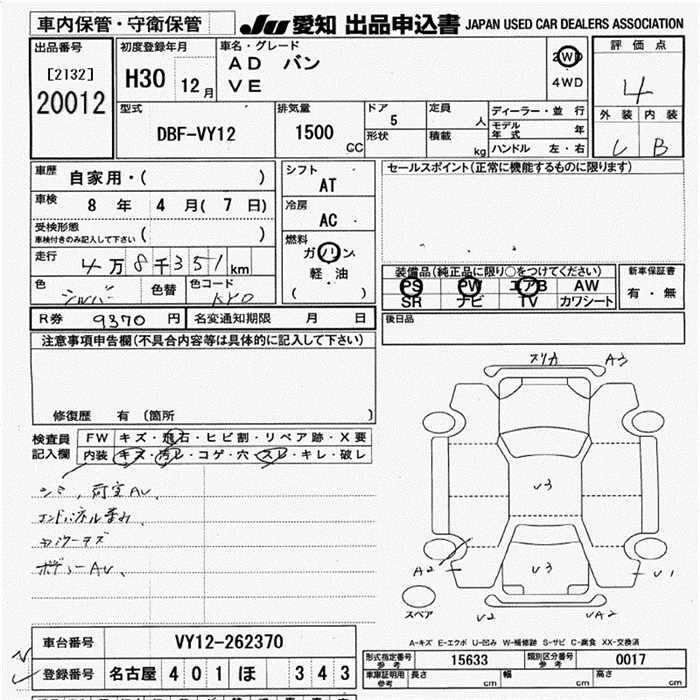 車内保管・守衛保管
JU 愛知 出品申込書 JAPAN USED CAR DEALERS ASSOCIATION
出品番号 初度登録年月 車名・グレード 評価点
[2132] H30 12月 AD バン 2WD 4
20012 VE 4WD
外装 内装
型式 排気量 ドア 5 定員 人 ディーラー・並行
DBF-VY12 1500 CC 形状 積載 kg モデル年式 年
ハンドル 左・右
B
車歴 自家用・( )
シフト AT
セールスポイント(正常に機能するものに限ります)
車検 8 年 4 月( 7 日)
冷房 AC
受検形態 ( )
車検付きのみ記入して下さい
燃料
ガソリン
軽油
( )
走行 4万8千351km
装備品(純正品に限り○をつけてください) 新車保証書
色 シルバー 色替 色コード KY0
PS PW エアB AW 有・無
SR ナビ TV カワシート
R券 9370 円 名変通知期限 月 日
後日品
注意事項申告欄(不具合内容等は具体的に記入して下さい)
修復歴 有 (箇所 )
検査員 FW キズ・飛石・ヒビ割・リペア跡・X要
記入欄 内装 キズ・汚レ・コゲ・穴・スレ・キレ・破レ
シミ、荷室AU、
ボデーAU、
A3
U3
U3
A2
U1
U2
UA2
スペア
A-キズ E-エクボ U-凹み W-補修跡 S-サビ C-腐食 XX-交換済
車台番号 VY12-262370
登録番号 名古屋 401 ほ 343
形式指定番号 参考 15633 類別区分番号 参考 0017
車庫証明用 参考 長さ cm 幅 cm 高さ cm